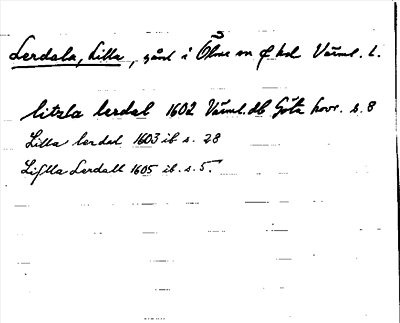 Lerdala, Lilla, gård i Ölme sn o hd Värml. l.
litzla lerdal 1602 Värml. db Göta hovr. s. 8
Lilla lerdal 1603 ib s. 28
Lislla Lerdall 1605 ib. s. 5.